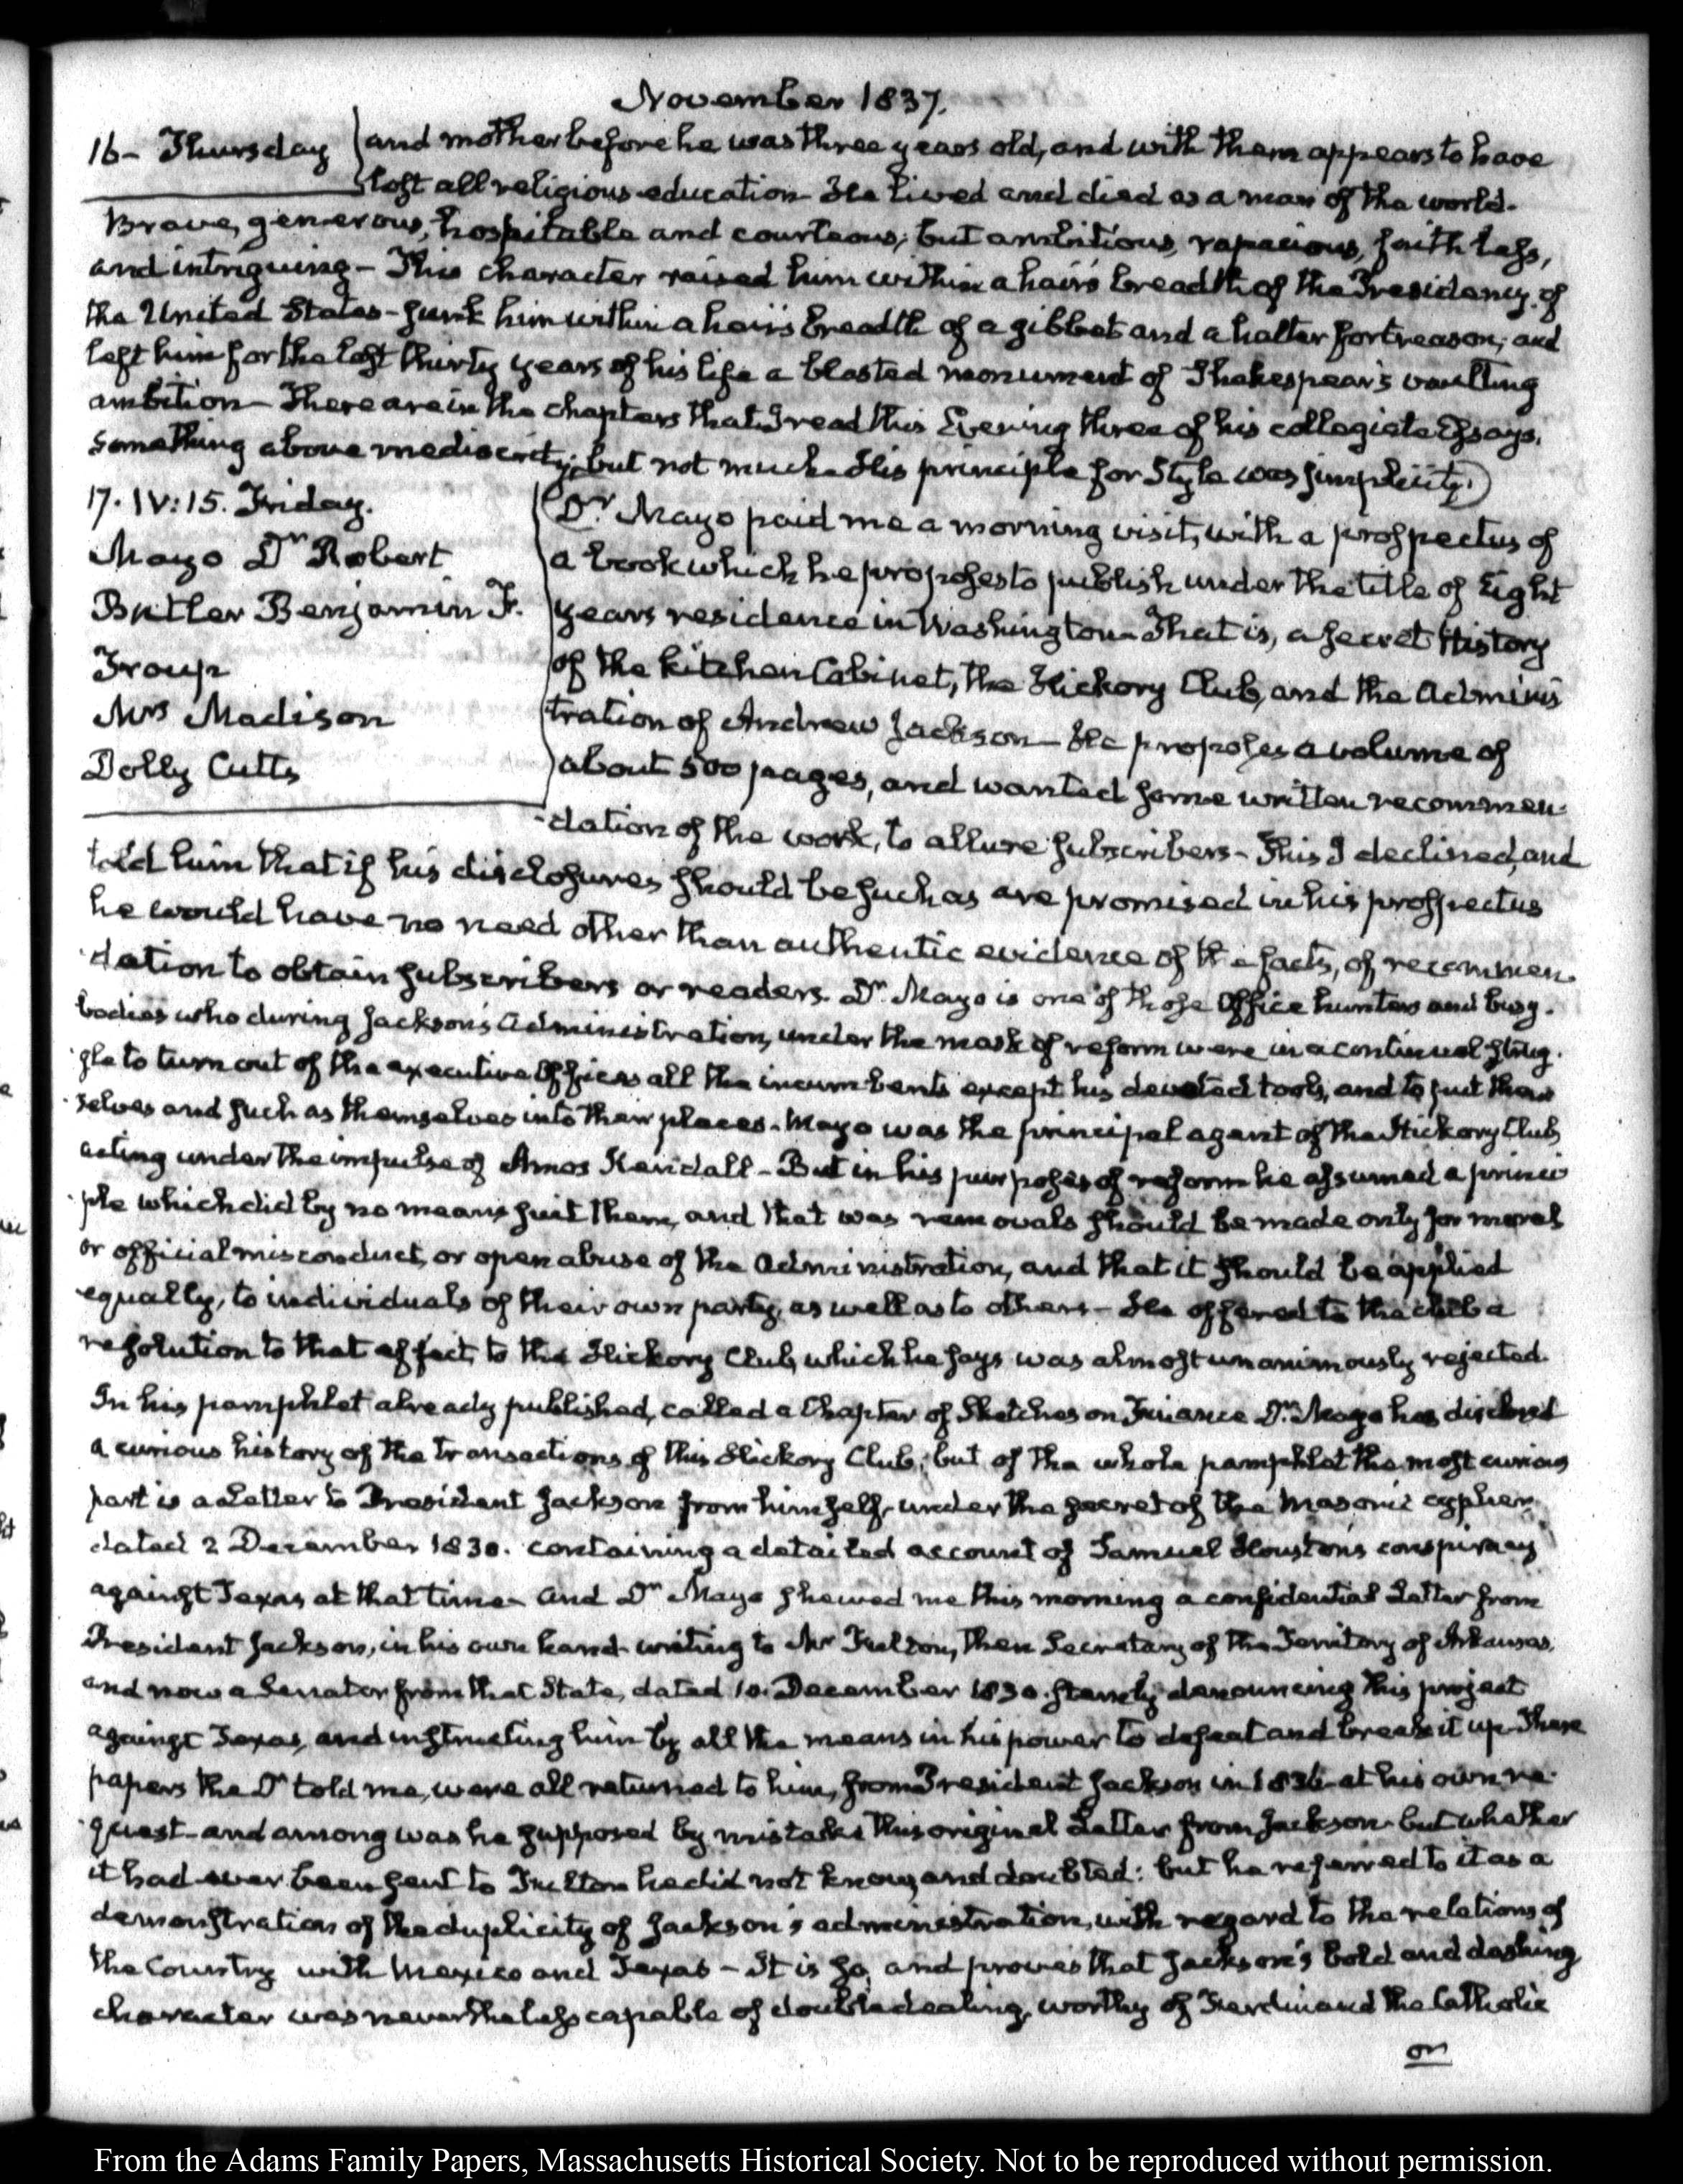 November 1837.
16 - Thursday
and mother before he was three years old, and with them appears to have
lost all religious education - He lived and died as a man of the world.
Brave, generous, hospitable and courteous; but ambitious, rapacious, faithless,
and intriguing - This character raised him within a hair's breadth of the Presidency of
the United States - sunk him within a hair's breadth of a gibbet and a halter for treason; and
left him for the last thirty years of his life a blasted monument of Shakespear's vaulting
ambition - There are in the chapters that I read this Evening three of his collegiate Essays.
something above mediocrity; but not much. His principle for Style was simplicity.)
17. IV:15. Friday.
Mayo Dr. Robert
Butler Benjamin F.
Troup
Mrs Madison
Dolly Cutts
Dr. Mayo paid me a morning visit, with a prospectus of
a book which he proposes to publish under the title of Eight
years residence in Washington - That is, a secret History
of the kitchen Cabinet, the Hickory Club, and the Adminis
tration of Andrew Jackson - He proposes a volume of
about 500 pages, and wanted some written recommen-
-dation of the work, to allure subscribers - This I declined, and
told him that if his disclosures should be such as are promised in his prospectus
he would have no need other than authentic evidence of the facts, of recommen-
-dation to obtain subscribers or readers. Dr. Mayo is one of those Office hunters and busy-
bodies who during Jackson's Administration, under the mask of reform were in a continual strug-
-gle to turn out of the executive Offices all the incumbents except his devoted tools, and to put them
-selves and such as themselves into their places. Mayo was the principal agent of the Hickory Club,
acting under the impulse of Amos Kendall - But in his purposes of reform he assumed a princi
-ple which did by no means suit them, and that was removals should be made only for moral
or official misconduct, or open abuse of the Administration, and that it should be applied
equally, to individuals of their own party, as well as to others - He offered to the club a
resolution to that effect, to the Hickory Club, which he says was almost unanimously rejected.
In his pamphlet already published, called a Chapter of Sketches on Finance Dr. Mayo has disclosed
a curious history of the transactions of this Hickory Club; but of the whole pamphlet the most curious
part is a Letter to President Jackson from himself, under the secret of the Masonic cypher,
dated 2 December 1830. containing a detailed account of Samuel Houston's conspiracy
against Texas at that time - and Dr Mayo shewed me this morning a confidential Letter from
President Jackson, in his own hand-writing to Mr Fulton, then Secretary of the Territory of Arkansas.
and now a Senator from that State, dated 10. December 1830. sternly denouncing this project
against Texas, and instructing him by all the means in his power to defeat and break it up - These
papers the Dr told me, were all returned to him, from President Jackson in 1836 at his own re-
-quest - and among was he supposed by mistake this original Letter from Jackson - but whether
it had ever been sent to Fulton he did not know, and doubted: but he referred to it as a
demonstration of the duplicity of Jackson's administration, with regard to the relations of
the Country with Mexico and Texas - It is so, and proves that Jackson's bold and dashing
character was nevertheless capable of double dealing, worthy of Ferdinand the Catholic
on
From the Adams Family Papers, Massachusetts Historical Society. Not to be reproduced without permission.